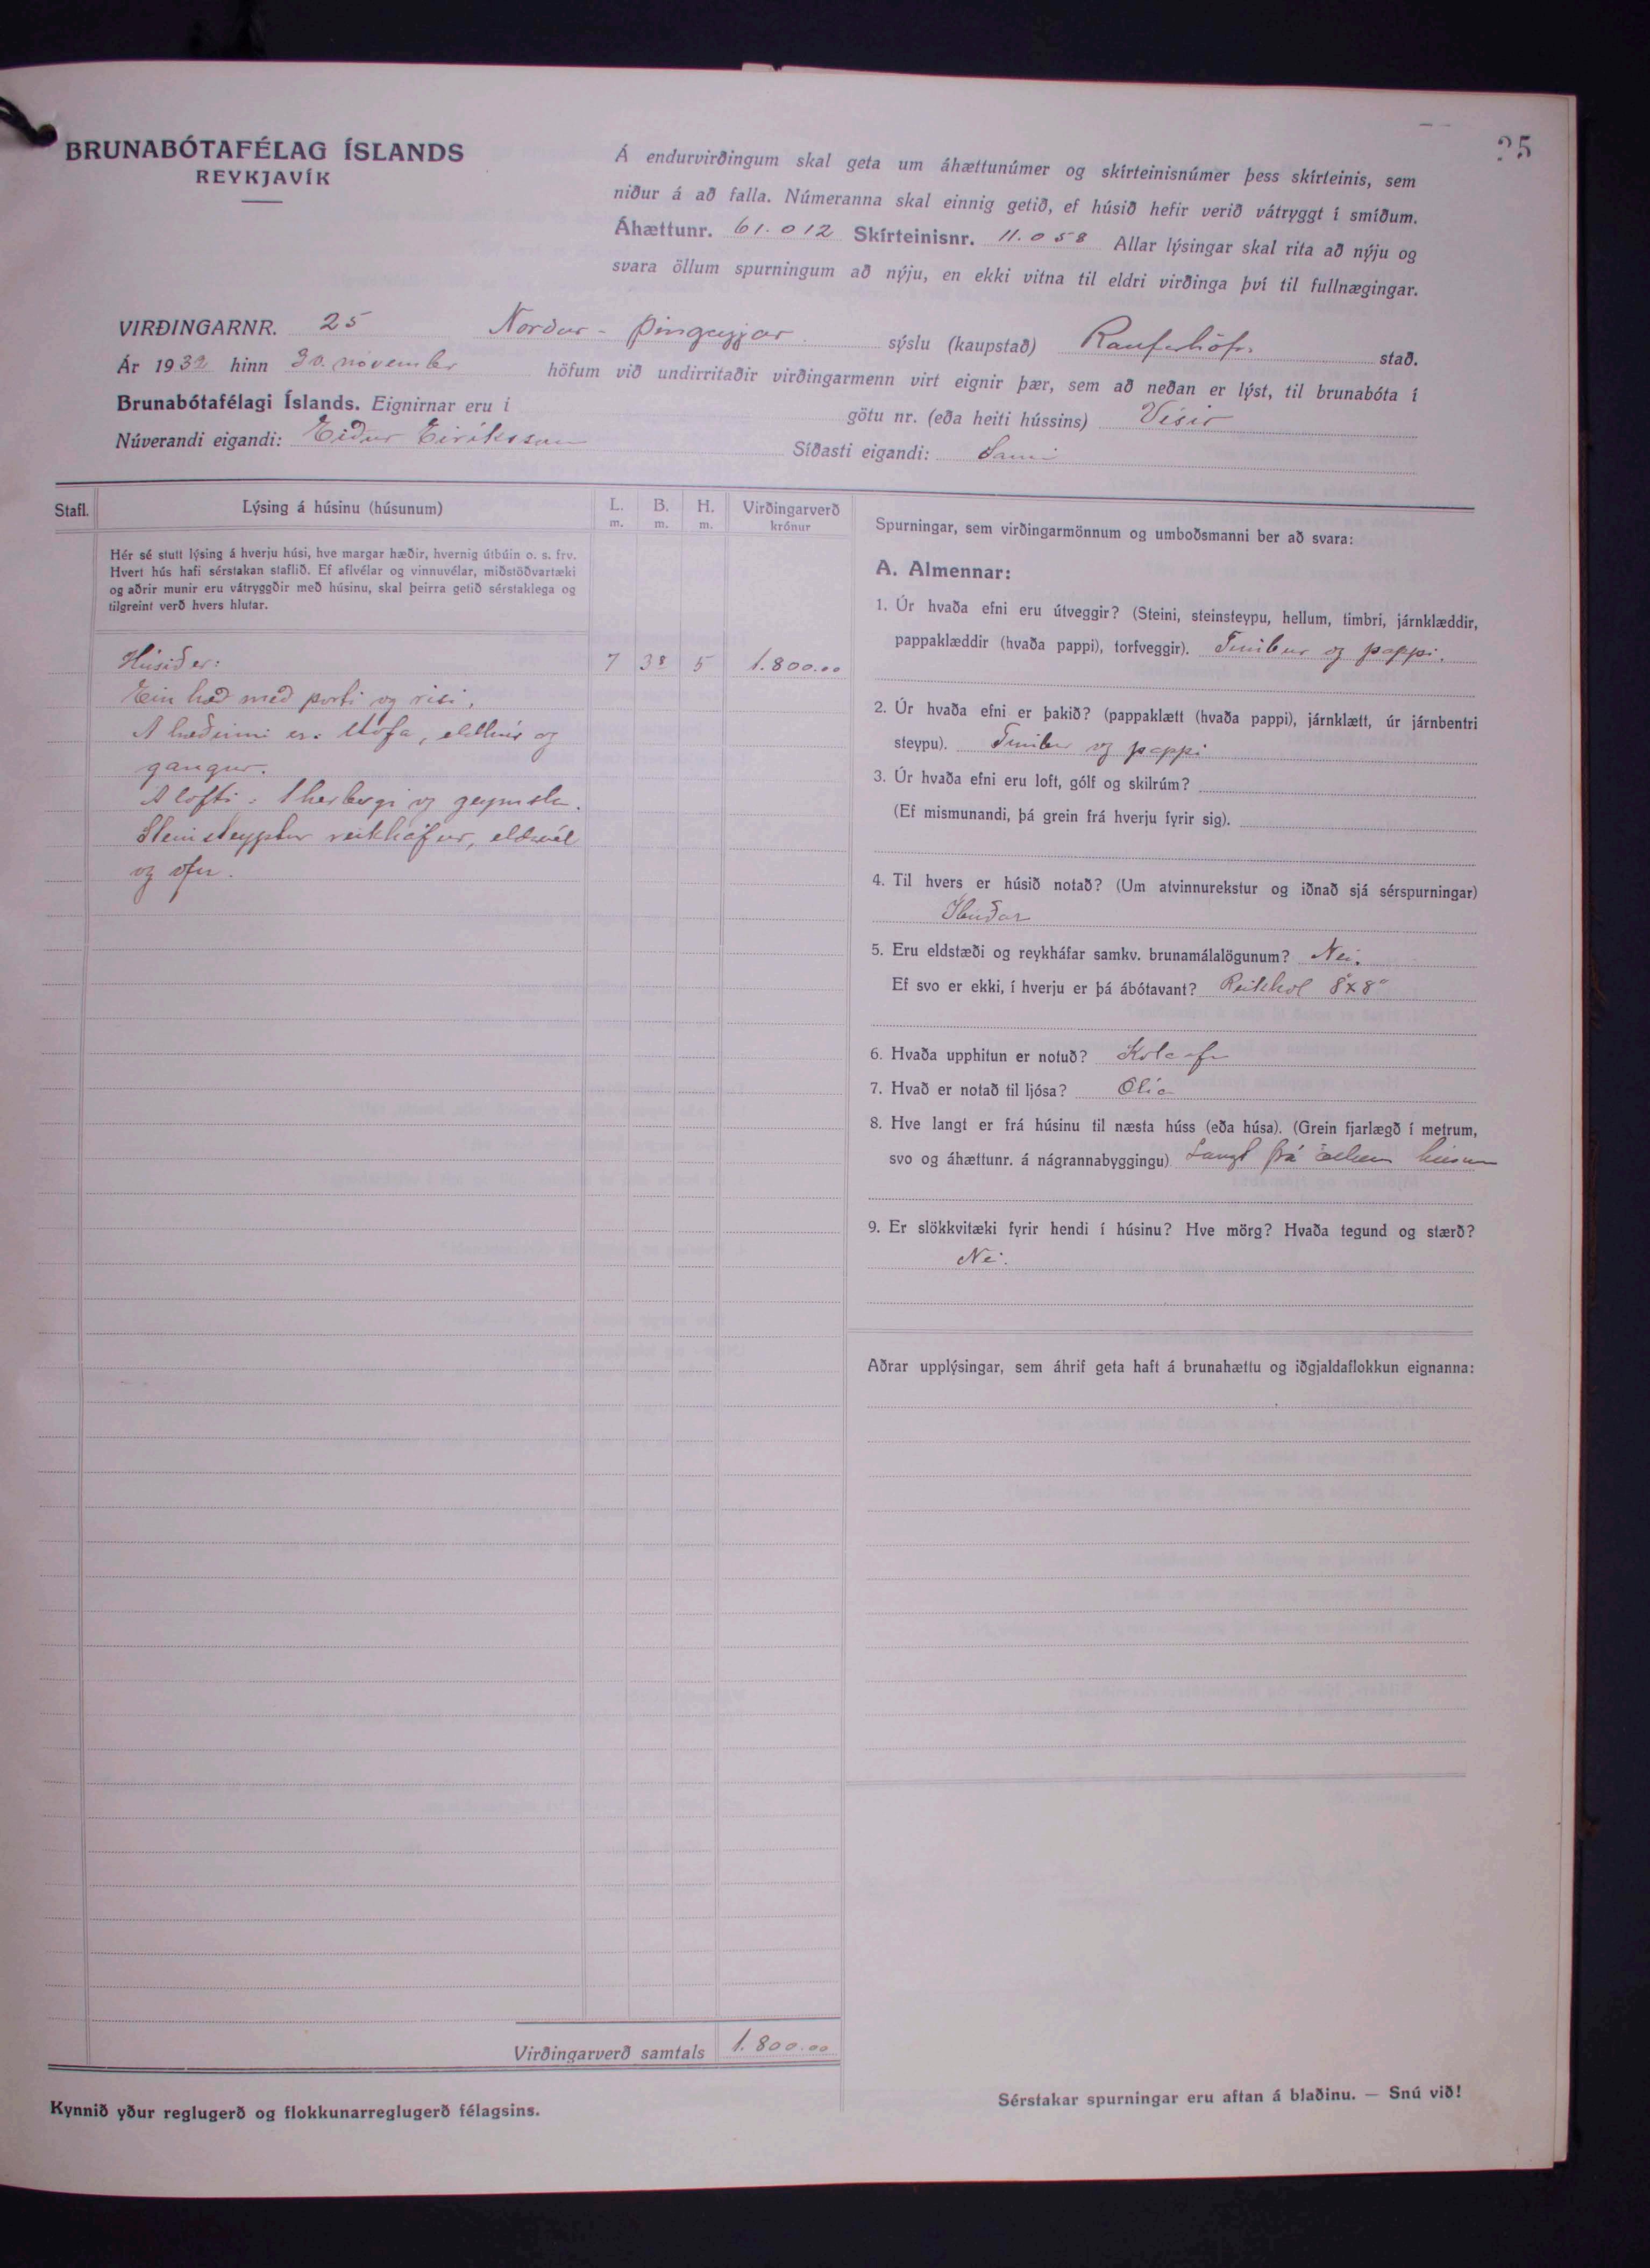 25
BRUNABÓTAFÉLAG ÍSLANDS
REYKJAVÍK
Á endurvirðingum skal geta um áhættunúmer og skírteinisnúmer þess skírteinis, sem
niður á að falla. Númeranna skal einnig getið, ef húsið hefir verið vátryggt í smíðum.
Áhættunr. 61.012 Skírteinisnr. 11.058 Allar lýsingar skal rita að nýju og
svara öllum spurningum að nýju, en ekki vitna til eldri virðinga því til fullnægingar.
VIRÐINGARNR. 25 Norður-Þingeyjar sýslu (kaupstað) Raufarhöfn stað.
Ár 1932 hinn 30. november höfum við undirritaðir virðingarmenn virt eignir þær, sem að neðan er lýst, til brunabóta í
Brunabótafélagi Íslands. Eignirnar eru í götu nr. (eða heiti hússins) Vísir
Núverandi eigandi: Eiður Eiríksson Síðasti eigandi: Sami
Stafl. Lýsing á húsinu (húsunum) L. m. B. m. H. m. Virðingarverð krónur
Hér sé stutt lýsing á hverju húsi, hve margar hæðir, hvernig útbúin o. s. frv.
Hvert hús hafi sérstakan staflið. Ef aflvélar og vinnuvélar, miðstöðvartæki
og aðrir munir eru vátryggðir með húsinu, skal þeirra getið sérstaklega og
tilgreint verð hvers hlutar.
Húsið er: 7 3⁸ 5 1.800.00
Ein hæð með porti og risi,
Á hæðinni er: Stofa, eldhús og
gangur.
Á lofti: 1 herbergi og geymsla.
Steinsteyptur reikháfur, eldavél
og ofn.
Virðingarverð samtals 1.800.00
Kynnið yður reglugerð og flokkunarreglugerð félagsins.
Spurningar, sem virðingarmönnum og umboðsmanni ber að svara:
A. Almennar:
1. Úr hvaða efni eru útveggir? (Steini, steinsteypu, hellum, timbri, járnklæddir,
pappaklæddir (hvaða pappi), torfveggir). Timbur og pappi.
2. Úr hvaða efni er þakið? (pappaklætt (hvaða pappi), járnklætt, úr járnbentri
steypu). Timbur og pappi
3. Úr hvaða efni eru loft, gólf og skilrúm?
(Ef mismunandi, þá grein frá hverju fyrir sig).
4. Til hvers er húsið notað? (Um atvinnurekstur og iðnað sjá sérspurningar)
Íbúðar
5. Eru eldstæði og reykháfar samkv. brunamálalögunum? Nei.
Ef svo er ekki, í hverju er þá ábótavant? Reikhol 8"x8"
6. Hvaða upphitun er notuð? Kolaofn
7. Hvað er notað til ljósa? Olía
8. Hve langt er frá húsinu til næsta húss (eða húsa). (Grein fjarlægð í metrum,
svo og áhættunr. á nágrannabyggingu) Langt frá öðrum húsum
9. Er slökkvitæki fyrir hendi í húsinu? Hve mörg? Hvaða tegund og stærð?
Nei.
Aðrar upplýsingar, sem áhrif geta haft á brunahættu og iðgjaldaflokkun eignanna:
Sérstakar spurningar eru aftan á blaðinu. — Snú við!